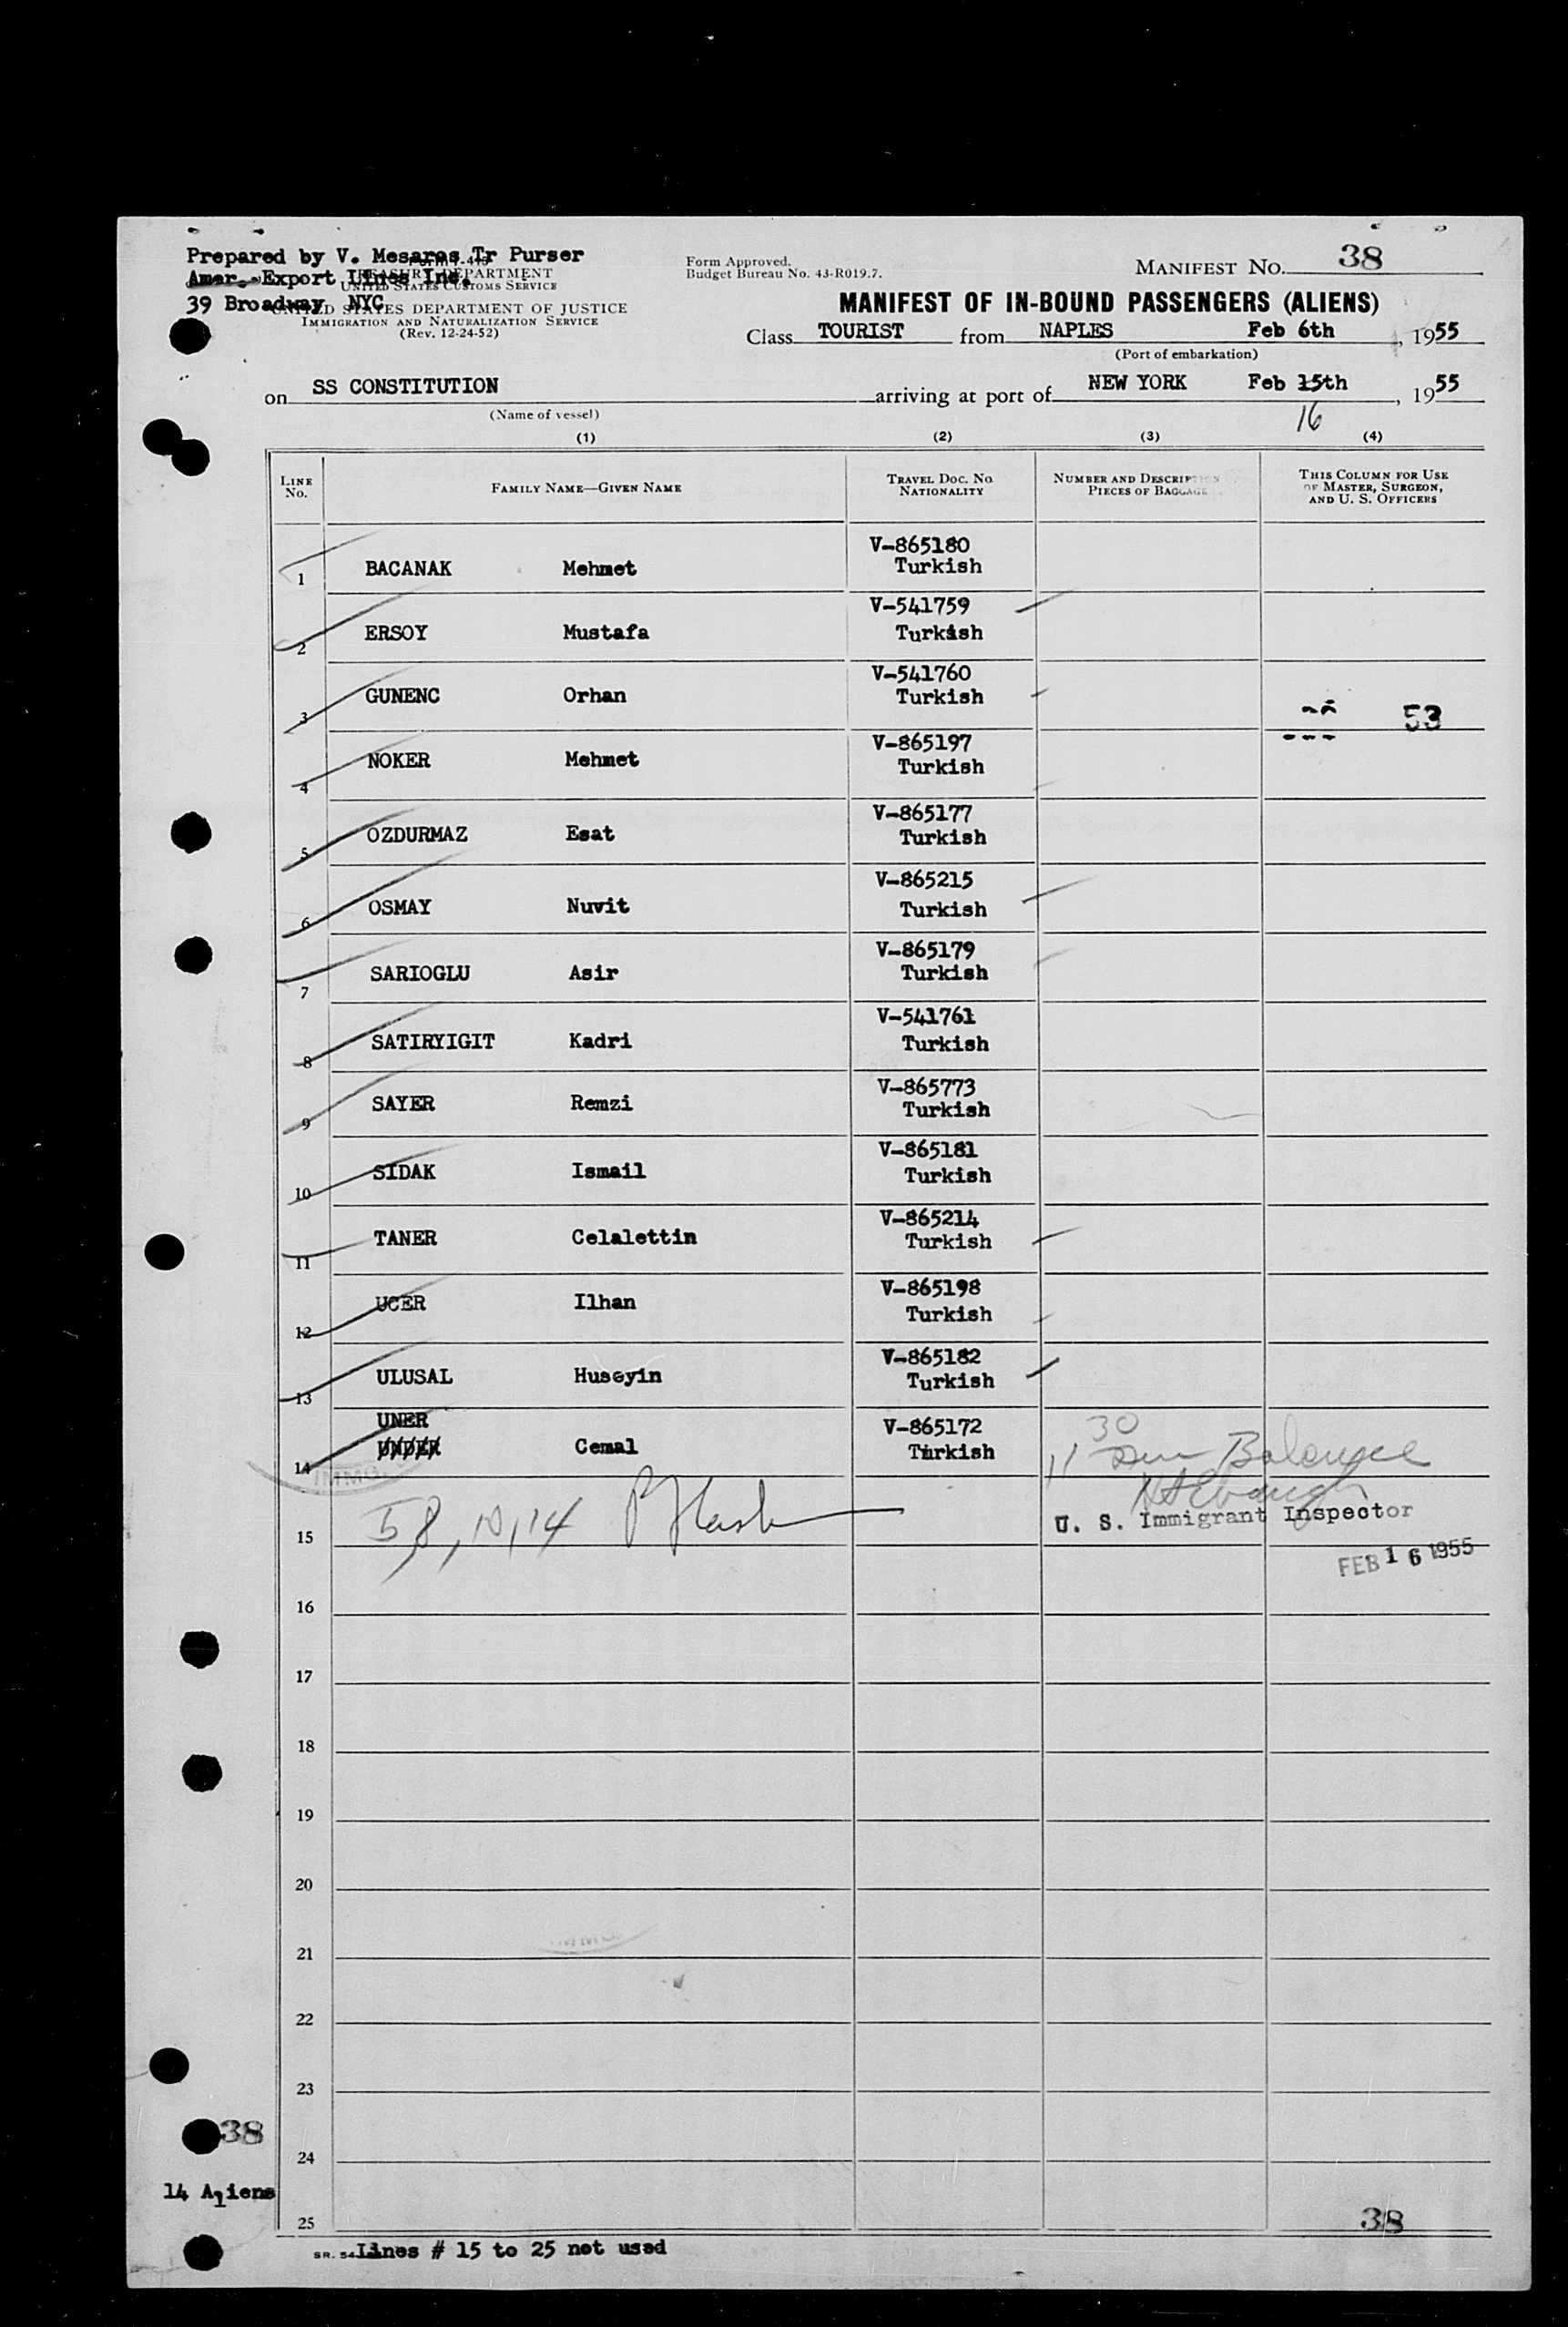 Prepared by V. Mesaros Tr Purser
Amer. Export Lines Inc.
39 Broadway, NYC
TREASURY DEPARTMENT
UNITED STATES CUSTOMS SERVICE
UNITED STATES DEPARTMENT OF JUSTICE
IMMIGRATION AND NATURALIZATION SERVICE
(Rev. 12-24-52)
Form Approved.
Budget Bureau No. 43-R019.7.
MANIFEST NO. 38
MANIFEST OF IN-BOUND PASSENGERS (ALIENS)
Class TOURIST from NAPLES Feb 6th, 1955
(Port of embarkation)
on SS CONSTITUTION arriving at port of NEW YORK Feb 15th, 1955
16
(Name of vessel)
(1) (2) (3) (4)
LINE NO.
FAMILY NAME—GIVEN NAME
TRAVEL DOC. NO. NATIONALITY
NUMBER AND DESCRIPTION PIECES OF BAGGAGE
THIS COLUMN FOR USE OF MASTER, SURGEON, AND U. S. OFFICERS
1 BACANAK Mehmet V-865180 Turkish
2 ERSOY Mustafa V-541759 Turkish
3 GUNENC Orhan V-541760 Turkish
53
4 NOKER Mehmet V-865197 Turkish
5 OZDURMAZ Esat V-865177 Turkish
6 OSMAY Nuvit V-865215 Turkish
7 SARIOGLU Asir V-865179 Turkish
8 SATIRYIGIT Kadri V-541761 Turkish
9 SAYER Remzi V-865773 Turkish
10 SIDAK Ismail V-865181 Turkish
11 TANER Celalettin V-865214 Turkish
12 UCER Ilhan V-865198 Turkish
13 ULUSAL Huseyin V-865182 Turkish
UNER
14 UNDER Cemal V-865172 Turkish
30
11 Balance
IMMG.
15 5, 8, 10, 14
U. S. Immigrant Inspector
FEB 16 1955
16
17
18
19
20
21
22
23
38
24
14 Aliens
25
38
SR. 54 Lines # 15 to 25 not used